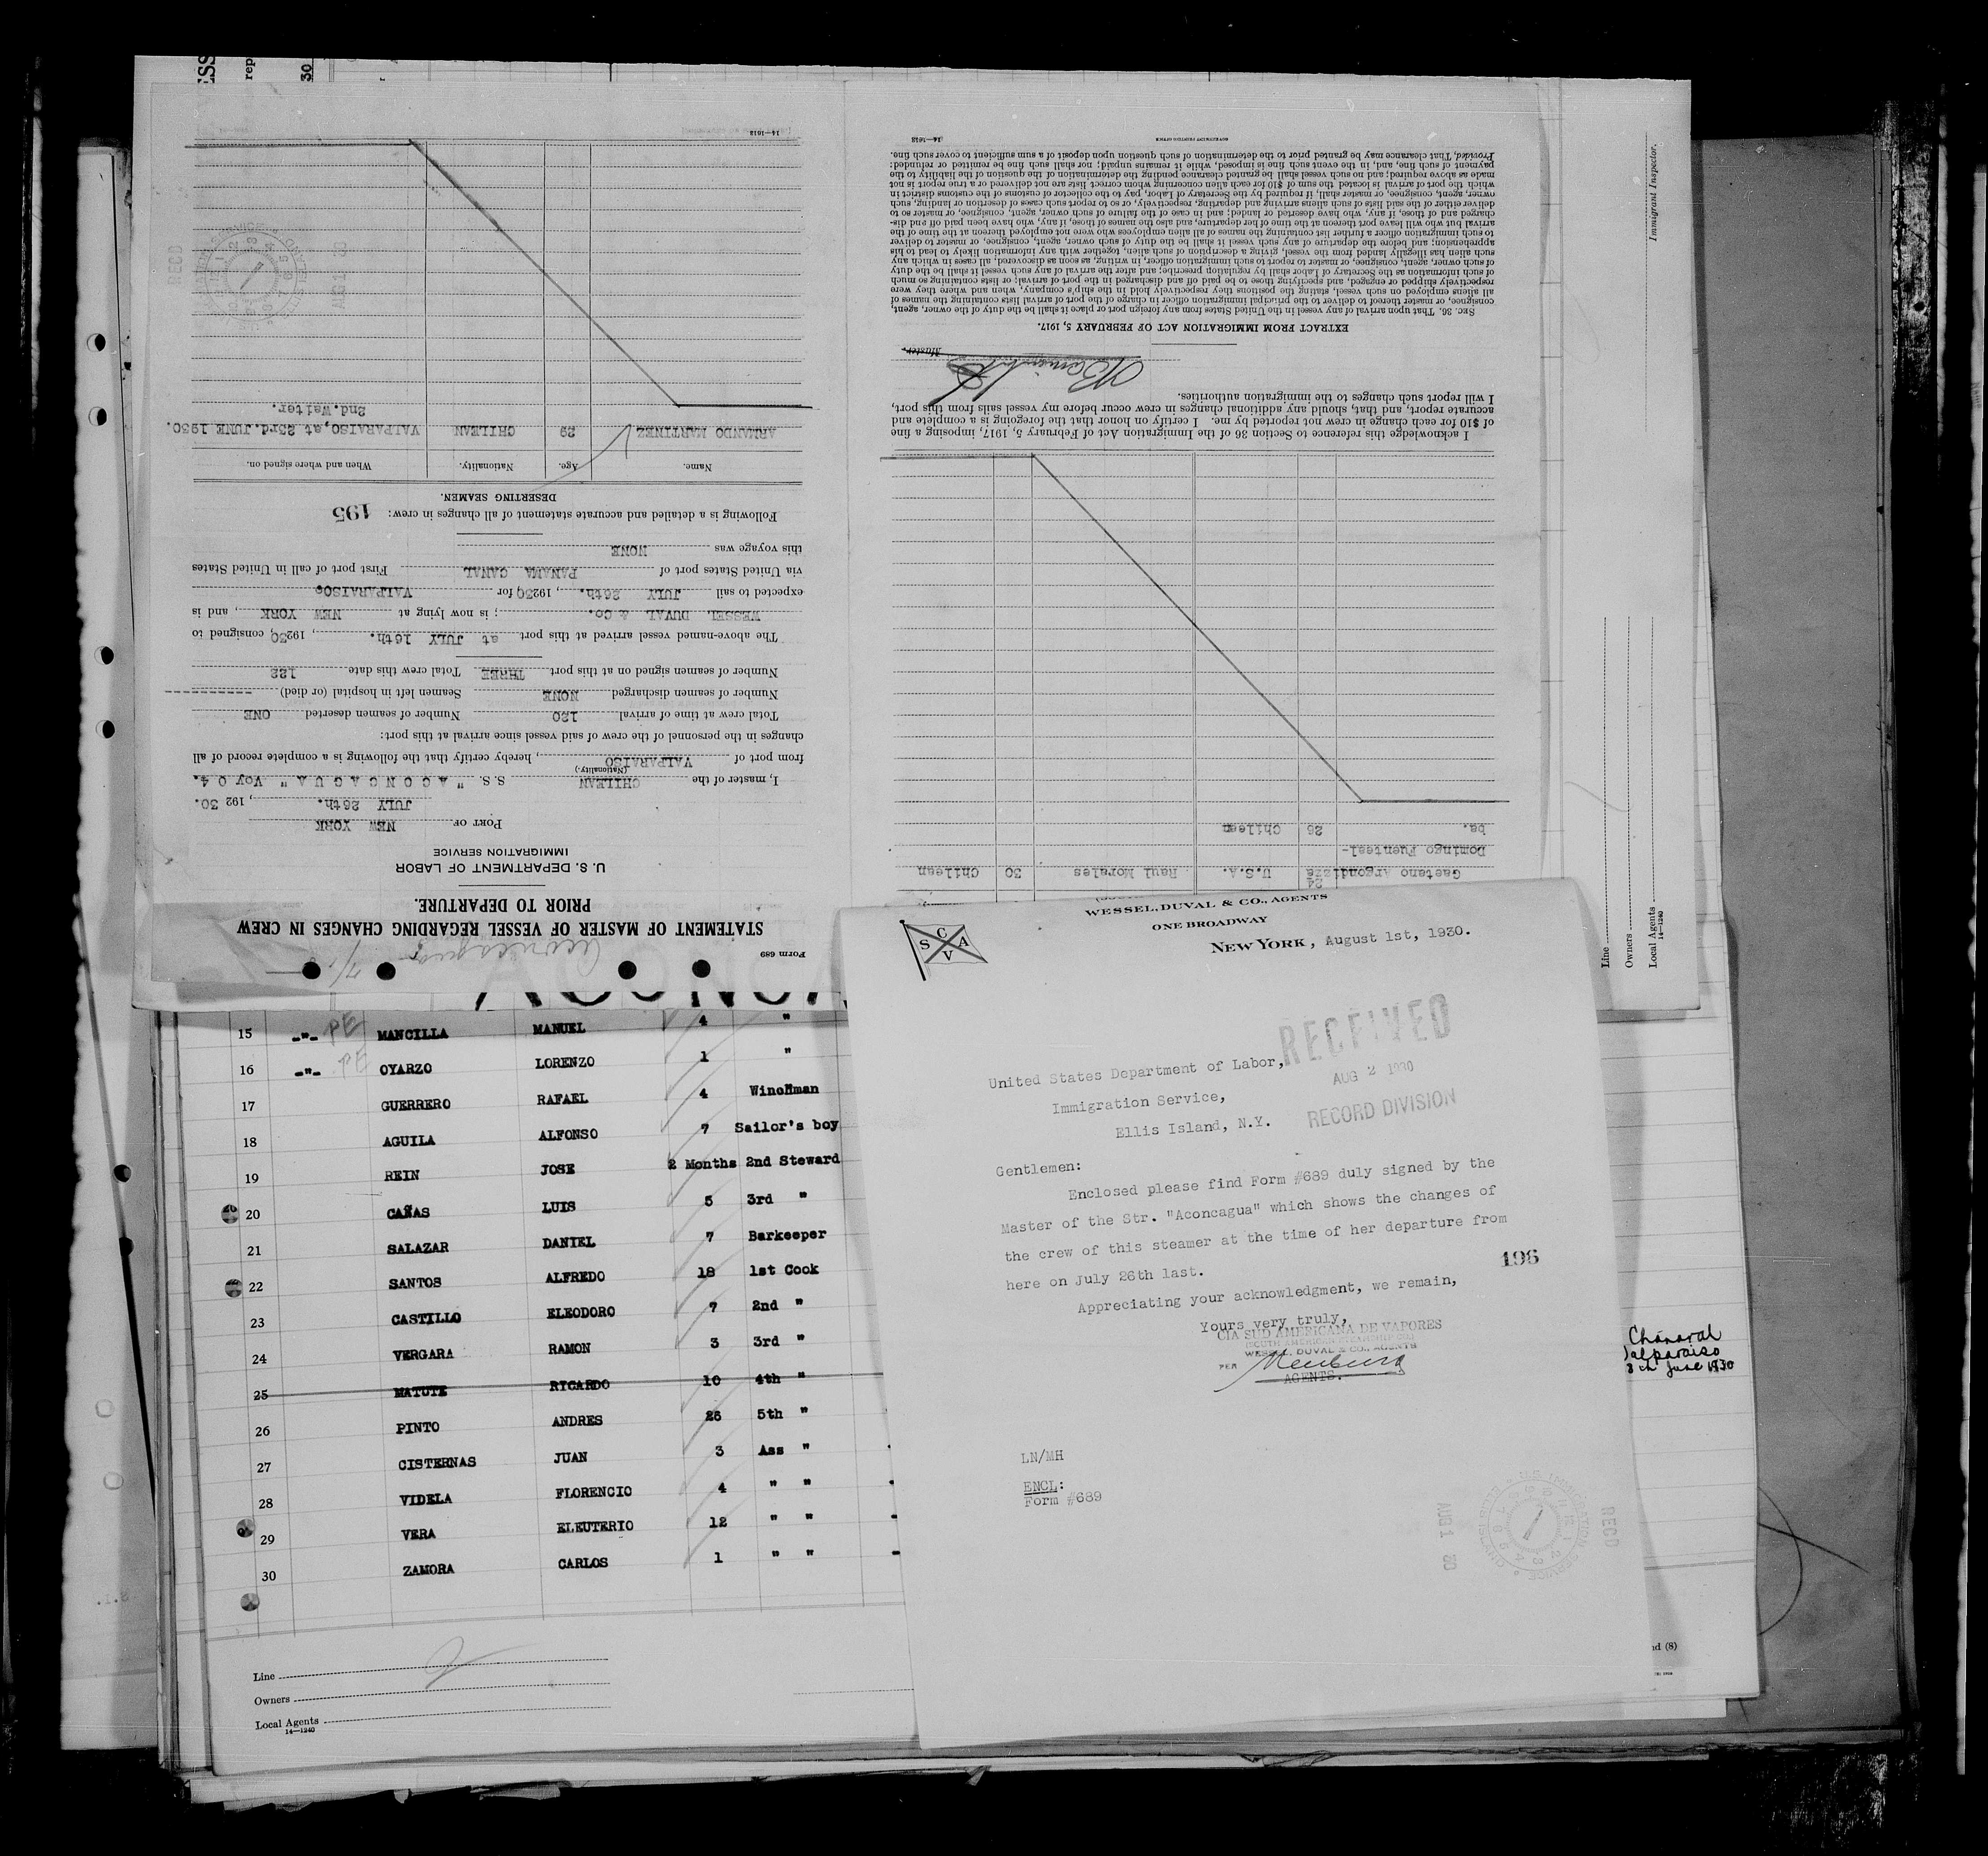 Form 689
STATEMENT OF MASTER OF VESSEL REGARDING CHANGES IN CREW
PRIOR TO DEPARTURE.
U. S. DEPARTMENT OF LABOR
IMMIGRATION SERVICE
PORT OF NEW YORK
JULY 26th. , 192 30.
I, master of the CHILEAN S. S. " A C O N C A G U A " Voy 0 4.
(Nationality.)
from port of VALPARAISO , hereby certify that the following is a complete record of all
changes in the personnel of the crew of said vessel since arrival at this port:
Total crew at time of arrival 120 Number of seamen deserted ONE
Number of seamen discharged NONE Seamen left in hospital (or died) -----------
Number of seamen signed on at this port THREE Total crew this date 122
The above-named vessel arrived at this port at JULY 16th. , 19230, consigned to
WESSEL DUVAL & Co. ; is now lying at NEW YORK , and is
expected to sail JULY 26th. , 19230 for VALPARAISO.
via United States port of PANAMA CANAL First port of call in United States
this voyage was NONE
Following is a detailed and accurate statement of all changes in crew: 195
DESERTING SEAMEN.
Name. Age. Nationality. When and where signed on.
ARMANDO MARTINEZ 29 CHILEAN VALPARAISO, at 23rd. JUNE 1930.
2nd. Waiter.
14—1613
REC'D
AUG 1 30
Gaetano Argondizza 24 U.S.A. Raul Morales 30 Chilean
Domingo Fuenteal-
ba. 26 Chilean
I acknowledge this reference to Section 36 of the Immigration Act of February 5, 1917, imposing a fine
of $10 for each change in crew not reported by me. I certify on honor that the foregoing is a complete and
accurate report, and that, should any additional changes in crew occur before my vessel sails from this port,
I will report such changes to the immigration authorities.
Master.
EXTRACT FROM IMMIGRATION ACT OF FEBRUARY 5, 1917.
SEC. 36. That upon arrival of any vessel in the United States from any foreign port or place it shall be the duty of the owner, agent,
consignee, or master thereof to deliver to the principal immigration officer in charge of the port of arrival lists containing the names of
all aliens employed on such vessel, stating the positions they respectively hold in the ship's company, when and where they were
respectively shipped or engaged, and specifying those to be paid off and discharged in the port of arrival; or lists containing so much
of such information as the Secretary of Labor shall by regulation prescribe; and after the arrival of any such vessel it shall be the duty
of such owner, agent, consignee, or master to report to such immigration officer, in writing, as soon as discovered, all cases in which any
such alien has illegally landed from the vessel, giving a description of such alien, together with any information likely to lead to his
apprehension; and before the departure of any such vessel it shall be the duty of such owner, agent, consignee, or master to deliver
to such immigration officer a further list containing the names of all alien employees who were not employed thereon at the time of the
arrival but who will leave port thereon at the time of her departure, and also the names of those, if any, who have been paid off and dis-
charged and of those, if any, who have deserted or landed; and in case of the failure of such owner, agent, consignee, or master so to
deliver either of the said lists of such aliens arriving and departing, respectively, or so to report such cases of desertion or landing, such
owner, agent, consignee, or master shall, if required by the Secretary of Labor, pay to the collector of customs of the customs district in
which the port of arrival is located the sum of $10 for each alien concerning whom correct lists are not delivered or a true report is not
made as above required; and no such vessel shall be granted clearance pending the determination of the question of the liability to the
payment of such fine, and, in the event such fine is imposed, while it remains unpaid; nor shall such fine be remitted or refunded:
Provided, That clearance may be granted prior to the determination of such question upon deposit of a sum sufficient to cover such fine.
14—1613 GOVERNMENT PRINTING OFFICE
Immigrant Inspector.
Line
Owners
Local Agents
14—1240
15 -"- MANCILLA MANUEL 4 "
16 -"- OYARZO LORENZO 1 "
17 GUERRERO RAFAEL 4 Winchman
18 AGUILA ALFONSO 7 Sailor's boy
19 REIN JOSE 2 Months 2nd Steward
20 CAÑAS LUIS 5 3rd "
21 SALAZAR DANIEL 7 Barkeeper
22 SANTOS ALFREDO 18 1st Cook
23 CASTILLO ELEODORO 7 2nd "
24 VERGARA RAMON 3 3rd "
25 MATUTE RICARDO 10 4th "
26 PINTO ANDRES 26 5th "
27 CISTERNAS JUAN 3 Ass "
28 VIDELA FLORENCIO 4 " "
29 VERA ELEUTERIO 12 " "
30 ZAMORA CARLOS 1 " "
Line
Owners
Local Agents
14—1240
C
S A
V
WESSEL, DUVAL & CO., AGENTS
ONE BROADWAY
NEW YORK, August 1st, 1930.
RECEIVED
AUG 2 1930
RECORD DIVISION
United States Department of Labor,
Immigration Service,
Ellis Island, N.Y.
Gentlemen:
Enclosed please find Form #689 duly signed by the
Master of the Str. "Aconcagua" which shows the changes of
the crew of this steamer at the time of her departure from
here on July 26th last.
196
Appreciating your acknowledgment, we remain,
Yours very truly,
CIA SUD AMERICANA DE VAPORES
WESSEL, DUVAL & CO., AGENTS
PER
AGENTS.
LN/MH
ENCL:
Form #689
REC'D
AUG 1 30
Chanaral
Valparaiso
8th June 1930